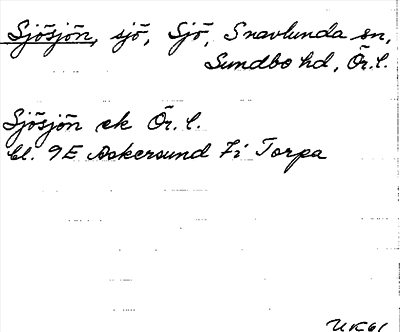 Sjösjön, sjö, Sjö, Snavlunda sn,
Sundbo hd, Ör.l.
Sjösjön ek Ör.l.
bl. 9E Askersund 7i Torpa
UK61